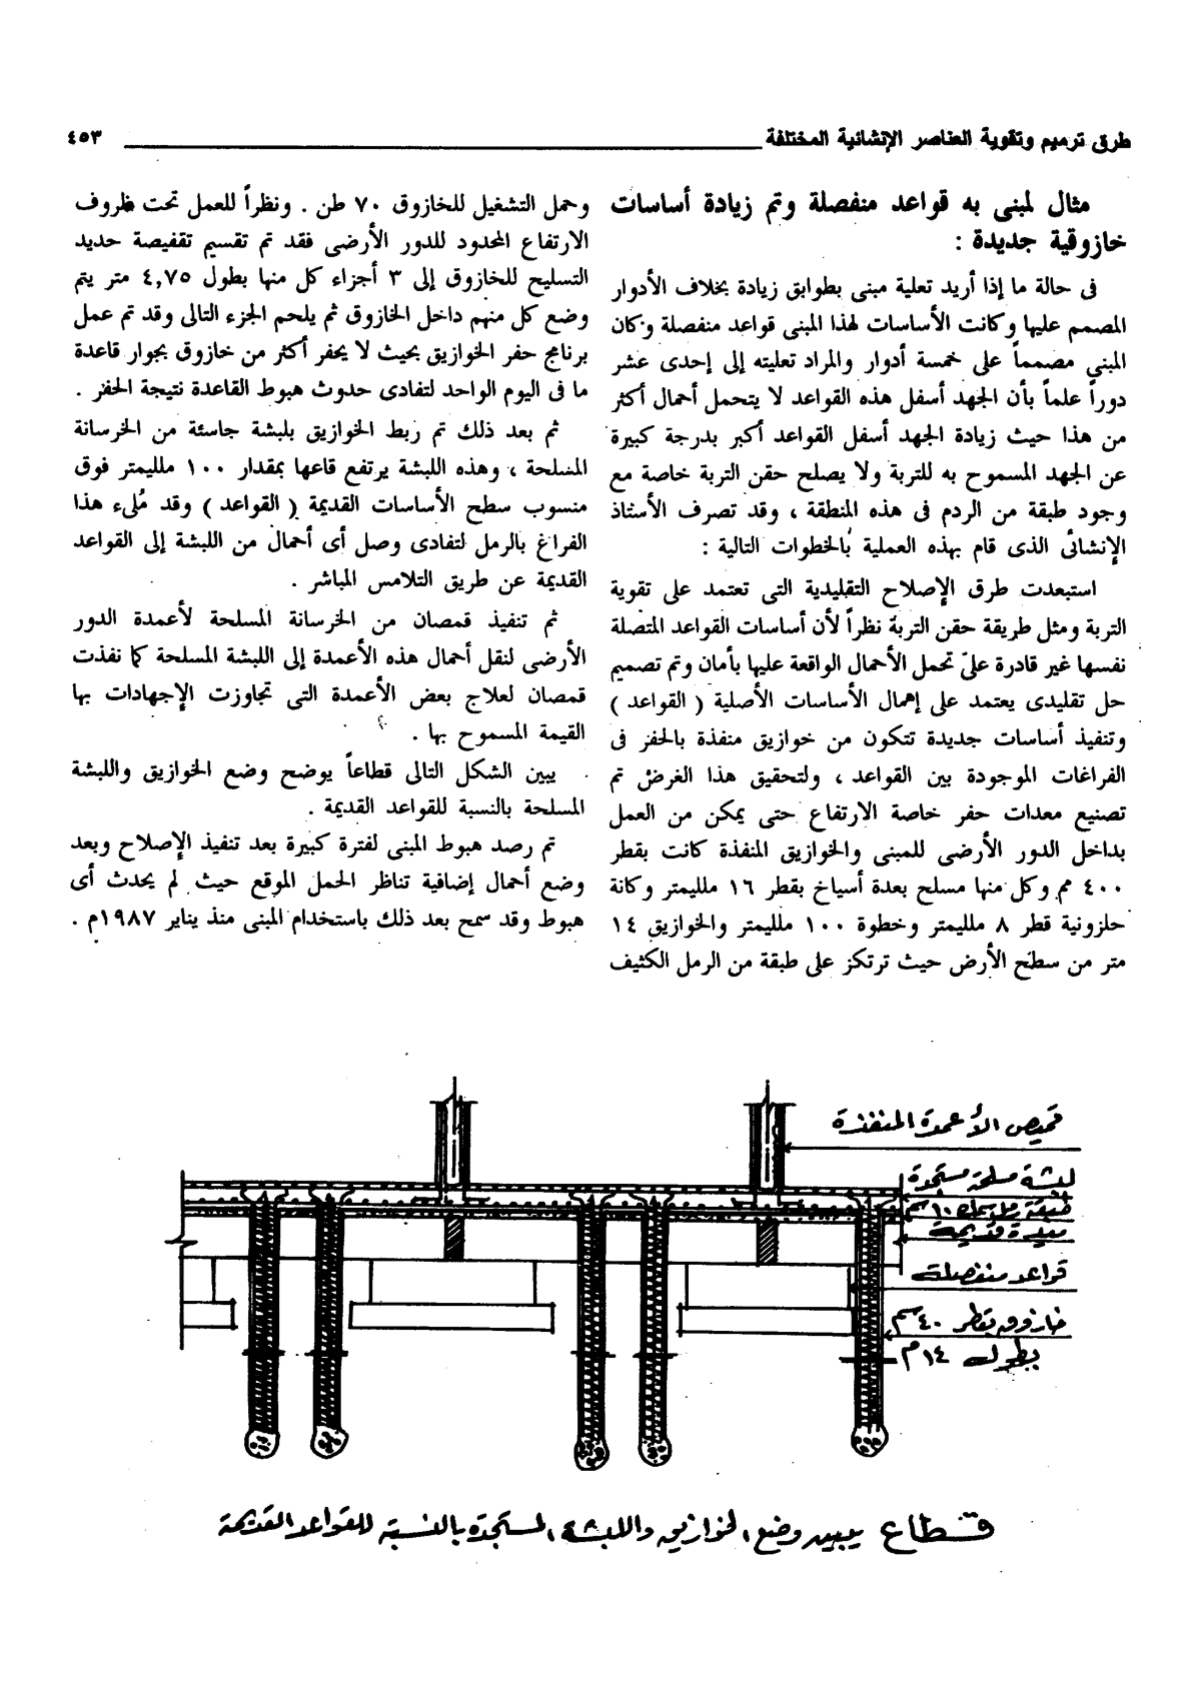 طرق ترميم وتقوية العناصر الإنشائية المختلفة
٤٥٣
مثال لمبنى به قواعد منفصلة وتم زيادة أساسات
خازوقية جديدة :
فى حالة ما إذا أريد تعلية مبنى بطوابق زيادة بخلاف الأدوار
المصمم عليها وكانت الأساسات لهذا المبنى قواعد منفصلة وكان
المبنى مصمماً على خمسة أدوار والمراد تعليته إلى إحدى عشر
دوراً علماً بأن الجهد أسفل هذه القواعد لا يتحمل أحمال أكثر
من هذا حيث زيادة الجهد أسفل القواعد أكبر بدرجة كبيرة
عن الجهد المسموح به للتربة ولا يصلح حقن التربة خاصة مع
وجود طبقة من الردم فى هذه المنطقة ، وقد تصرف الأستاذ
الإنشائى الذى قام بهذه العملية بالخطوات التالية :
استبعدت طرق الإصلاح التقليدية التى تعتمد على تقوية
التربة ومثل طريقة حقن التربة نظراً لأن أساسات القواعد المتصلة
نفسها غير قادرة على تحمل الأحمال الواقعة عليها بأمان وتم تصميم
حل تقليدى يعتمد على إهمال الأساسات الأصلية ( القواعد )
وتنفيذ أساسات جديدة تتكون من خوازيق منفذة بالحفر فى
الفراغات الموجودة بين القواعد ، ولتحقيق هذا الغرض تم
تصنيع معدات حفر خاصة الارتفاع حتى يمكن من العمل
بداخل الدور الأرضى للمبنى والخوازيق المنفذة كانت بقطر
٤٠٠ مم وكل منها مسلح بعدة أسياخ بقطر ١٦ ملليمتر وكانة
حلزونية قطر ٨ ملليمتر وخطوة ١٠٠ ملليمتر والخوازيق ١٤
متر من سطح الأرض حيث ترتكز على طبقة من الرمل الكثيف
وحمل التشغيل للخازوق ٧٠ طن . ونظراً للعمل تحت ظروف
الارتفاع المحدود للدور الأرضى فقد تم تقسيم تقفيصة حديد
التسليح للخازوق إلى ٣ أجزاء كل منها بطول ٤,٧٥ متر يتم
وضع كل منهم داخل الخازوق ثم يلحم الجزء التالى وقد تم عمل
برنامج حفر الخوازيق بحيث لا يحفر أكثر من خازوق بجوار قاعدة
ما فى اليوم الواحد لتفادى حدوث هبوط القاعدة نتيجة الحفر .
ثم بعد ذلك تم ربط الخوازيق بلبشة جاسئة من الخرسانة
المسلحة ، وهذه اللبشة يرتفع قاعها بمقدار ١٠٠ ملليمتر فوق
منسوب سطح الأساسات القديمة ( القواعد ) وقد مُلىء هذا
الفراغ بالرمل لتفادى وصل أى أحمال من اللبشة إلى القواعد
القديمة عن طريق التلامس المباشر .
ثم تنفيذ قمصان من الخرسانة المسلحة لأعمدة الدور
الأرضى لنقل أحمال هذه الأعمدة إلى اللبشة المسلحة كما نفذت
قمصان لعلاج بعض الأعمدة التى تجاوزت الإجهادات بها
القيمة المسموح بها .
يبين الشكل التالى قطاعاً يوضح وضع الخوازيق واللبشة
المسلحة بالنسبة للقواعد القديمة .
تم رصد هبوط المبنى لفترة كبيرة بعد تنفيذ الإصلاح وبعد
وضع أحمال إضافية تناظر الحمل الموقع حيث لم يحدث أى
هبوط وقد سمح بعد ذلك باستخدام المبنى منذ يناير ١٩٨٧م .
قميص الأعمدة المنفذة
لبشة مسلحة مستجدة
طبقة رمل سمك ١٠ سم
ميدة قديمة
قواعد منفصلة
خازوق بقطر ٤٠ سم
بطول ١٤ م
قطاع يبين وضع الخوازيق واللبشة المستجدة بالنسبة للقواعد القديمة